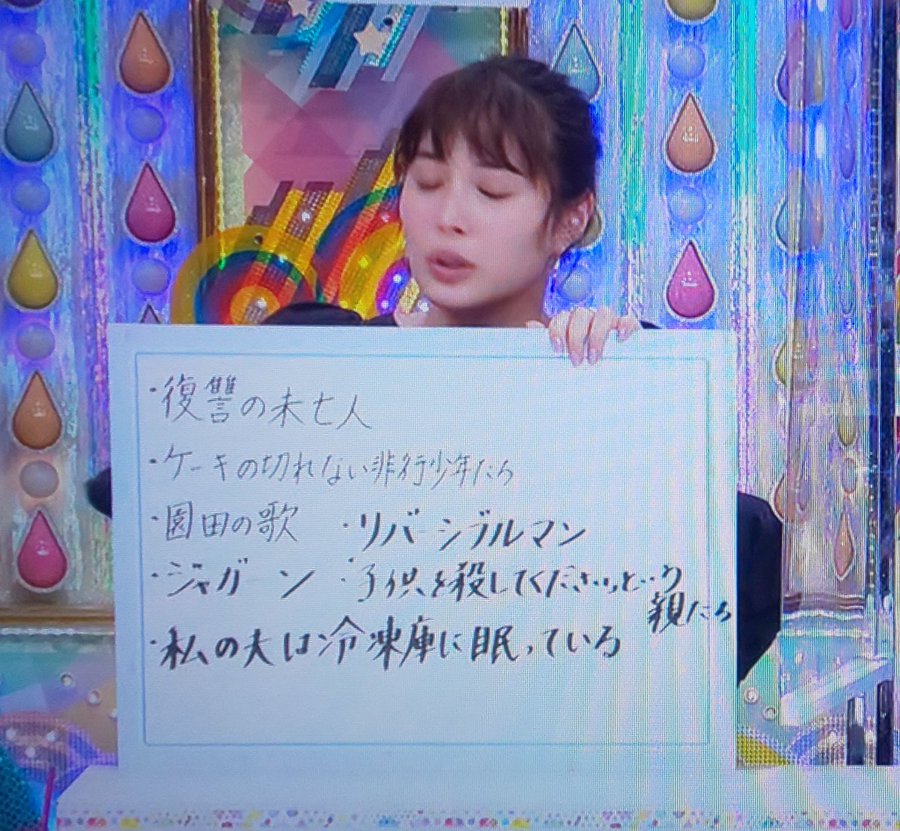 ・復讐の未亡人
・ケーキの切れない非行少年たち
・園田の歌 ・リバーシブルマン
・ジャガーン ・子供を殺してくださいという親たち
・私の夫は冷凍庫に眠っている